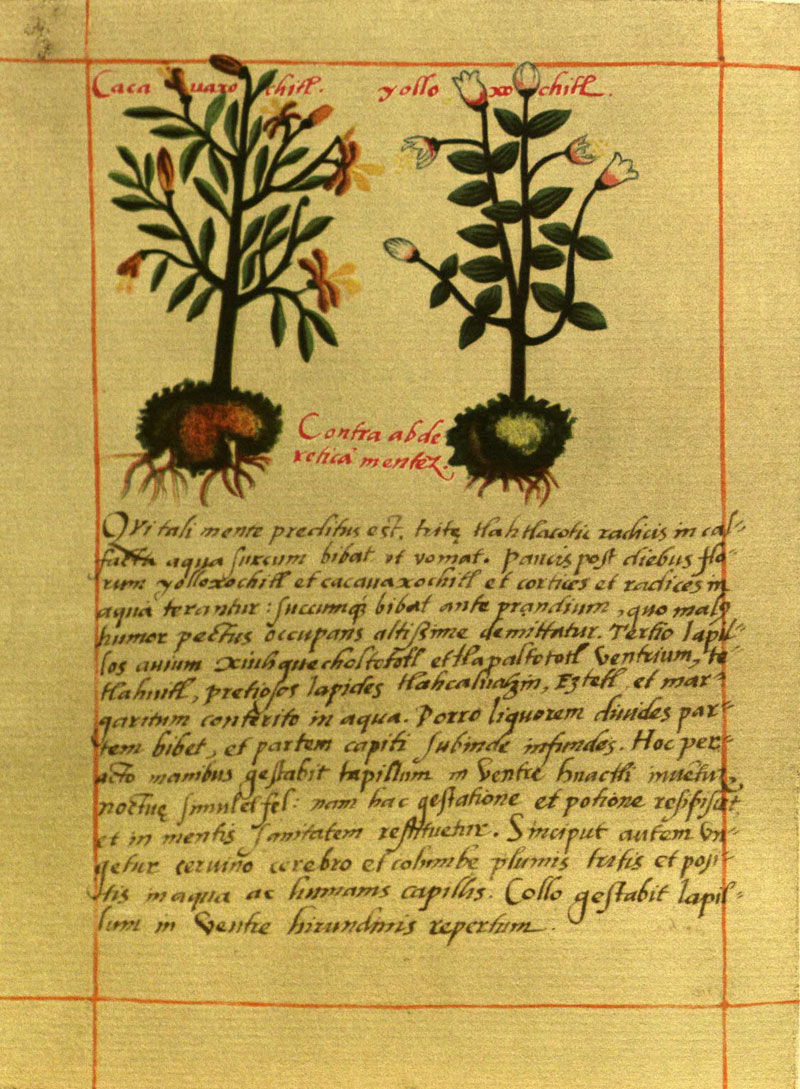 Cacauaxochitl. yolloxochitl.
Contra abde
reticā mentēz.
QVi tali mente preditus est, tritę tlahtlacotic radicis in cal=
facta aqua succum bibat vt vomat. Paucis post diebus flo=
rum yolloxochitl et cacauaxochitl et cortices et radices in
aqua terantur : succumq́ bibat ante prandium, quo malꝰ
humor pectus occupans altissime demittatur. Tertio lapil=
los auium xiuhquecholtototl et tlapaltototl ventrium, te
tlahuitl, pretiosos lapides tlahcalhuatzin, Eztetl, et mar=
garitum conterito in aqua. Porro liquorem diuides par=
tem bibet, et partem capiti subinde infundes. Hoc per=
acto manibus gestabit lapillum in ventre huactli inuētū,
noctuę simul et fel : nam hac gestatione et potione resipiscet
et in mentis sanitatem restituetur. Sinciput autem vn=
getur ceruino cerebro et columbe plumis tritis et posi=
tis in aqua ac humanis capillis. Collo gestabit lapil=
lum in ventre hirundinis repertum.